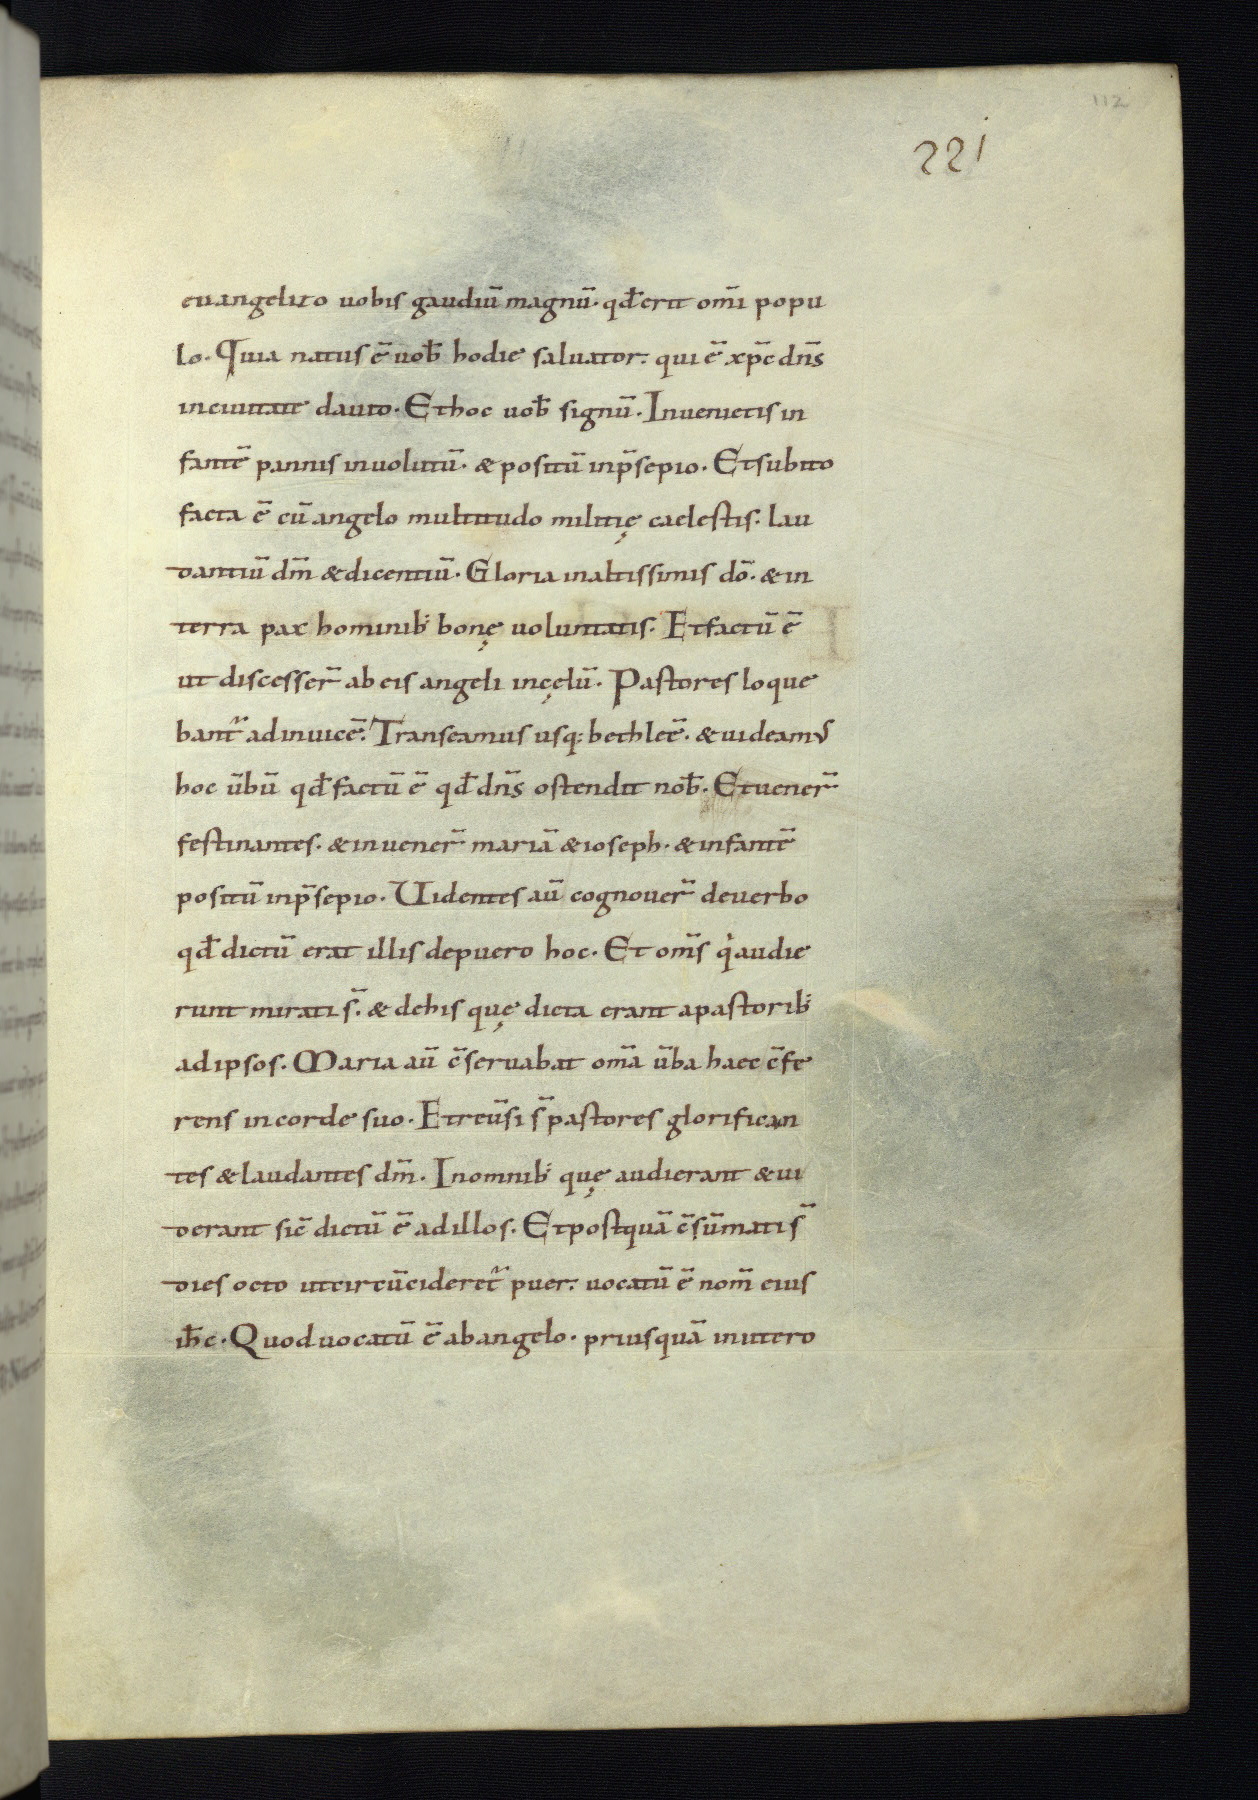 112
221
euangelizo uobis gaudiū magnū· qđ erit om̄i popu
lo· Quia natus ē uob̄ hodie saluator· qui ē xp̄c dn̄s
in ciuitate dauid· Et hoc uob̄ signū· Inuenietis in
fantē pannis inuolutū· & positū in p̄sepio· Et subito
facta ē cū angelo multitudo militię caelestis· lau
dantiū dm̄ & dicentiū· Gloria in altissimis dō· & in
terra pax hominib; bonę uoluntatis· Et factū ē
ut discesser̄ ab eis angeli in cęlū· Pastores loque
bant̄ ad inuicē· Transeamus usq; bethleē· & uideamus
hoc ūbū qđ factū ē qđ dn̄s ostendit nob̄· Et uener̄
festinantes· & inuener̄ mariā & ioseph· & infantē
positū in p̄sepio· Uidentes aū cognouer̄ de uerbo
qđ dictū erat illis de puero hoc· Et om̄s qi audie
runt mirati s̄· & de his quę dicta erant a pastorib;
ad ipsos· Maria aū c̄seruabat om̄a ūba haec c̄fe
rens in corde suo· Et reūsi s̄ pastores glorifican
tes & laudantes dm̄· In omnib; quę audierant & ui
derant sic̄ dictū ē ad illos· Et postquā c̄sūmati s̄
dies octo ut circūcideret̄ puer· uocatū ē nom̄ eius
ih̄c· Quod uocatū ē ab angelo· priusquā in utero